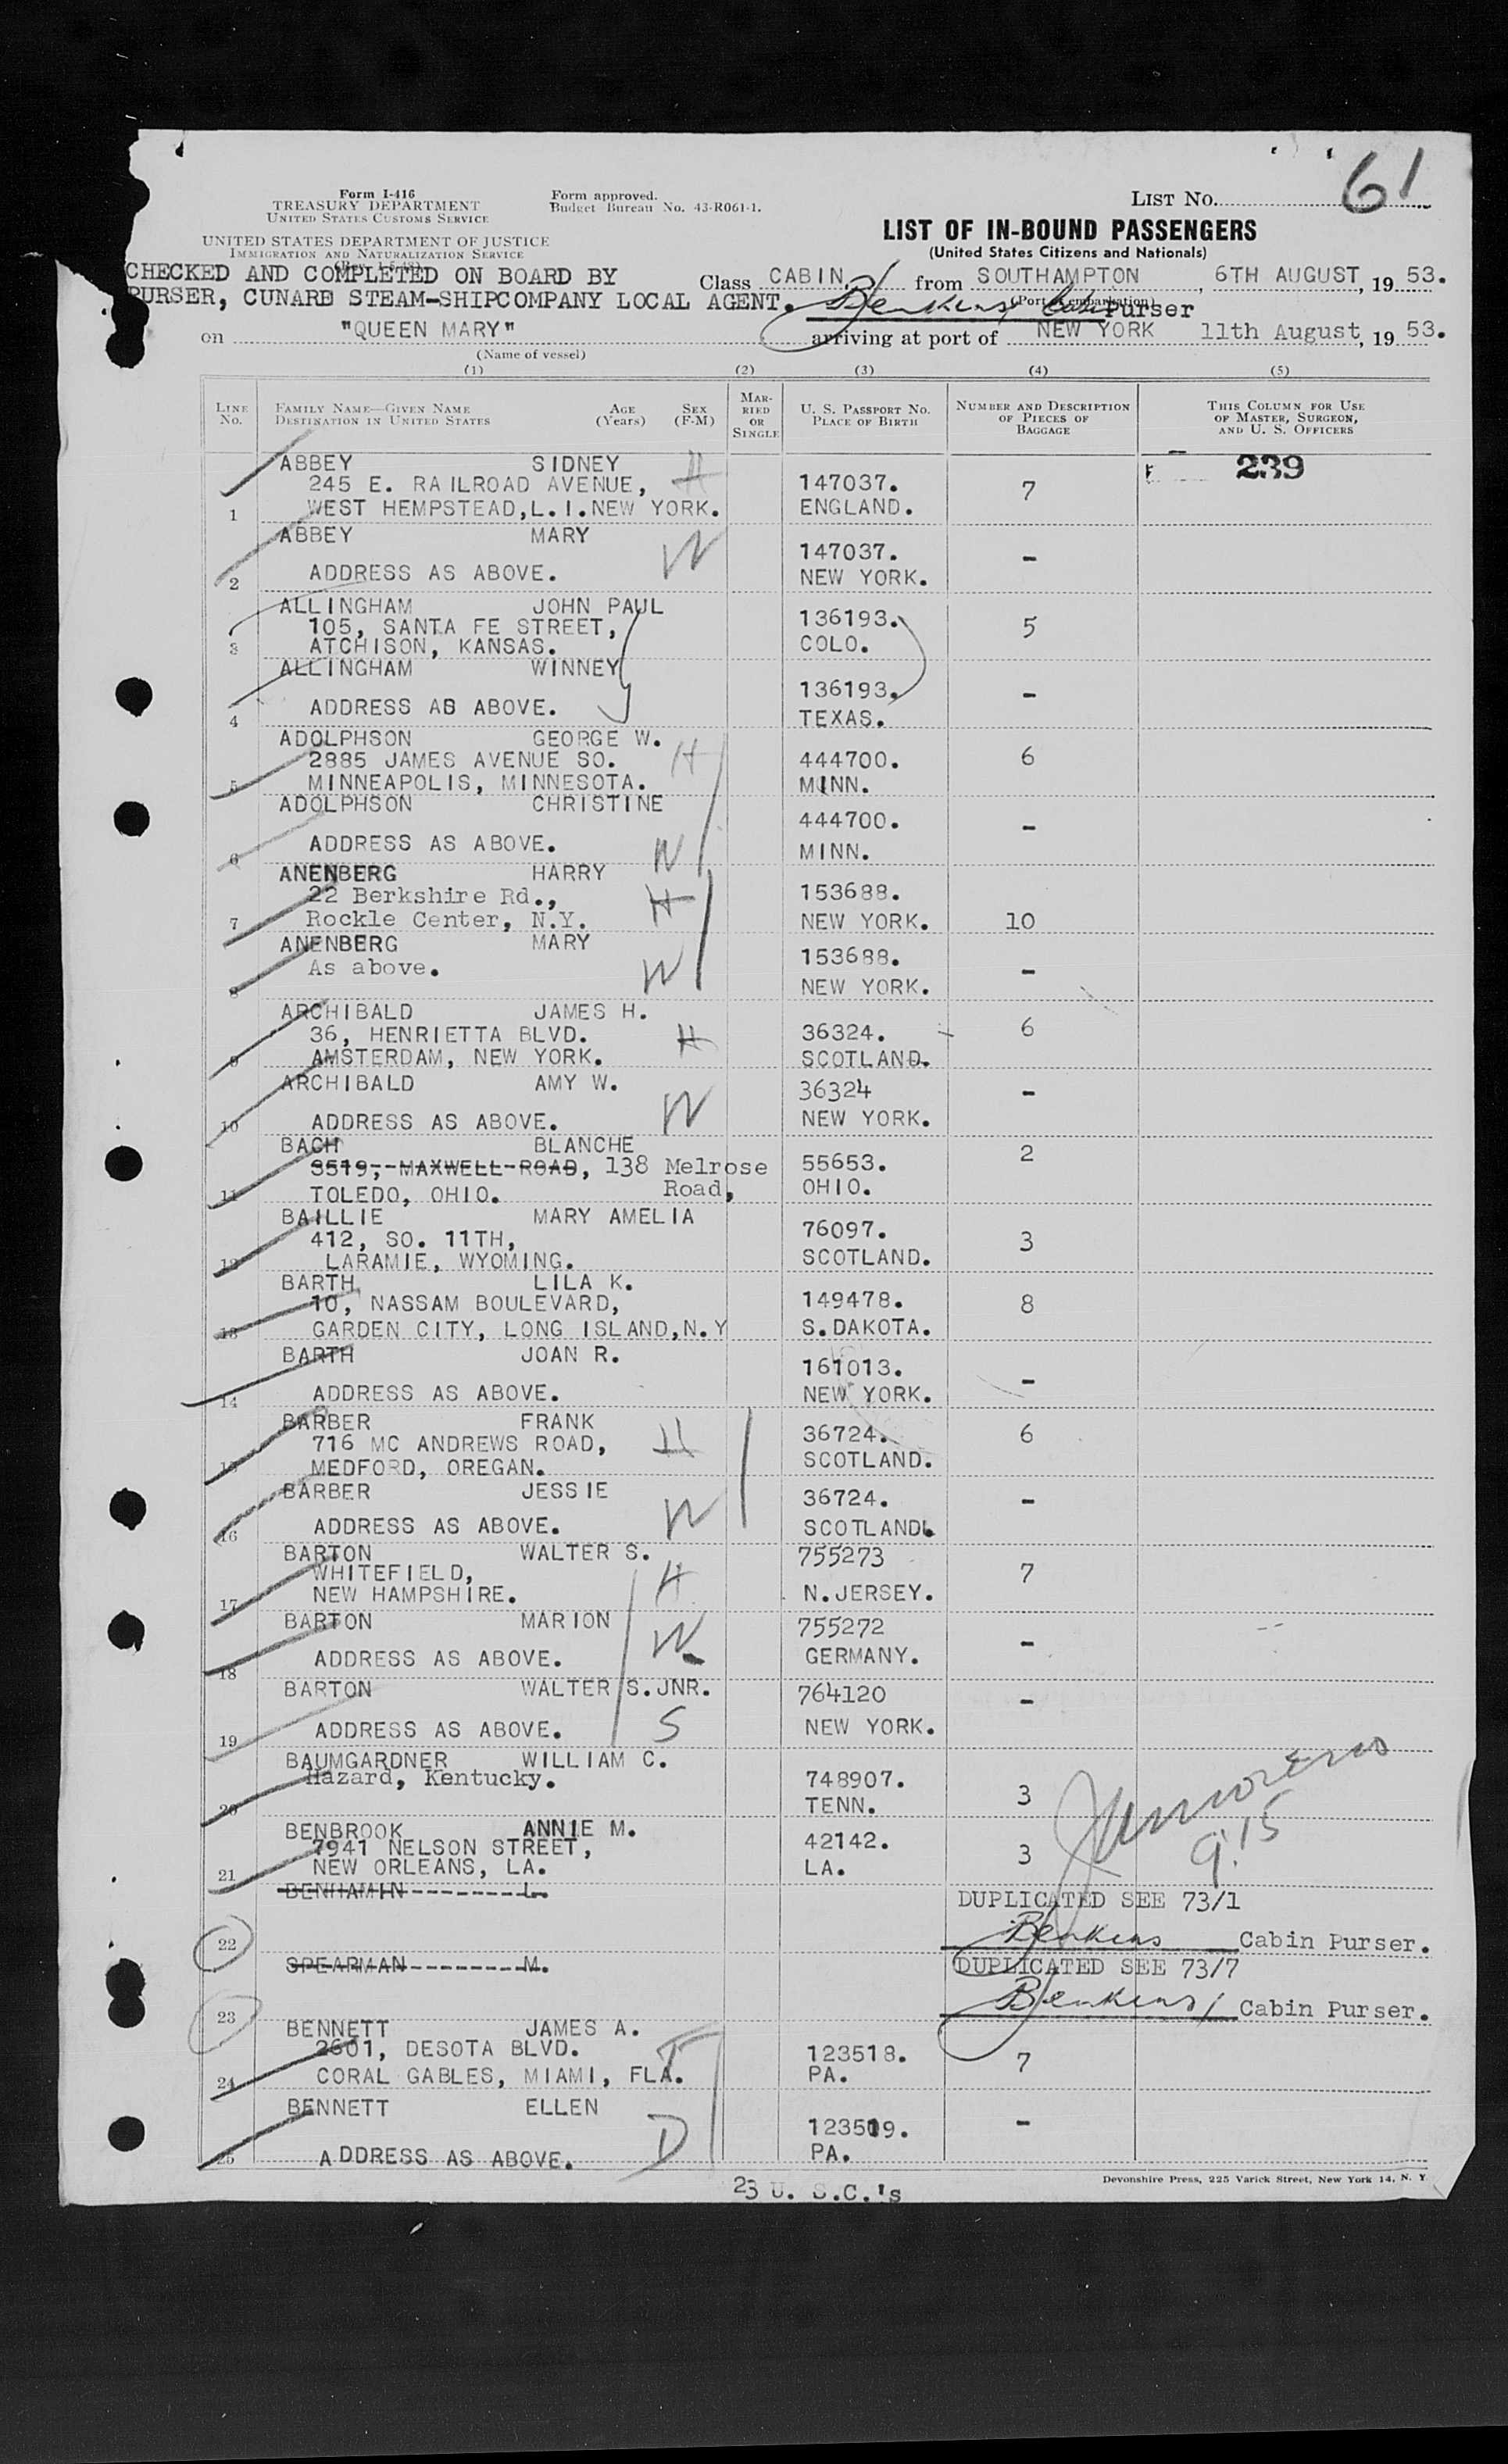 61
Form I-416
TREASURY DEPARTMENT
UNITED STATES CUSTOMS SERVICE
Form approved.
Budget Bureau No. 43-R061-1.
LIST No.
LIST OF IN-BOUND PASSENGERS
(United States Citizens and Nationals)
UNITED STATES DEPARTMENT OF JUSTICE
IMMIGRATION AND NATURALIZATION SERVICE
CHECKED AND COMPLETED ON BOARD BY
PURSER, CUNARD STEAM-SHIPCOMPANY LOCAL AGENT.
Class CABIN. from SOUTHAMPTON, 6TH AUGUST, 19 53.
(Port of embarkation)
Purser
on "QUEEN MARY"
(Name of vessel)
arriving at port of NEW YORK 11th August, 19 53.
(1) (2) (3) (4) (5)
LINE No.
FAMILY NAME—GIVEN NAME
DESTINATION IN UNITED STATES
AGE (Years)
SEX (F-M)
MARRIED OR SINGLE
U. S. PASSPORT No.
PLACE OF BIRTH
NUMBER AND DESCRIPTION OF PIECES OF BAGGAGE
THIS COLUMN FOR USE OF MASTER, SURGEON, AND U. S. OFFICERS
239
1 ABBEY SIDNEY H
245 E. RAILROAD AVENUE, 147037. 7
WEST HEMPSTEAD,L.I.NEW YORK. ENGLAND.
2 ABBEY MARY W
147037. -
ADDRESS AS ABOVE. NEW YORK.
3 ALLINGHAM JOHN PAUL
105, SANTA FE STREET, 136193. 5
ATCHISON, KANSAS. COLO.
4 ALLINGHAM WINNEY
136193. -
ADDRESS AS ABOVE. TEXAS.
5 ADOLPHSON GEORGE W. H
2885 JAMES AVENUE SO. 444700. 6
MINNEAPOLIS, MINNESOTA. MINN.
6 ADOLPHSON CHRISTINE
444700. -
ADDRESS AS ABOVE. W MINN.
7 ANENBERG HARRY
22 Berkshire Rd., H 153688.
Rockle Center, N.Y. NEW YORK. 10
8 ANENBERG MARY
As above. W 153688. -
NEW YORK.
9 ARCHIBALD JAMES H.
36, HENRIETTA BLVD. H 36324. 6
AMSTERDAM, NEW YORK. SCOTLAND.
10 ARCHIBALD AMY W.
W 36324 -
ADDRESS AS ABOVE. NEW YORK.
11 BACH BLANCHE 2
3519, MAXWELL ROAD, 138 Melrose 55653.
TOLEDO, OHIO. Road, OHIO.
12 BAILLIE MARY AMELIA
412, SO. 11TH, 76097. 3
LARAMIE, WYOMING. SCOTLAND.
13 BARTH LILA K.
10, NASSAM BOULEVARD, 149478. 8
GARDEN CITY, LONG ISLAND,N.Y S.DAKOTA.
14 BARTH JOAN R.
161013. -
ADDRESS AS ABOVE. NEW YORK.
15 BARBER FRANK
716 MC ANDREWS ROAD, H 36724. 6
MEDFORD, OREGAN. SCOTLAND.
16 BARBER JESSIE
W 36724. -
ADDRESS AS ABOVE. SCOTLAND.
17 BARTON WALTER S. 755273
WHITEFIELD, H 7
NEW HAMPSHIRE. N.JERSEY.
18 BARTON MARION 755272
W -
ADDRESS AS ABOVE. GERMANY.
19 BARTON WALTER S.JNR. 764120 -
ADDRESS AS ABOVE. S NEW YORK.
20 BAUMGARDNER WILLIAM C.
Hazard, Kentucky. 748907. 3
TENN.
9:15
21 BENBROOK ANNIE M.
7941 NELSON STREET, 42142. 3
NEW ORLEANS, LA. LA.
22 BENHAMIN L.
DUPLICATED SEE 73/1
Cabin Purser.
23 SPEARMAN M.
DUPLICATED SEE 73/7
Cabin Purser.
24 BENNETT JAMES A.
2601, DESOTA BLVD. 123518. 7
CORAL GABLES, MIAMI, FLA. PA.
25 BENNETT ELLEN
D 123519. -
ADDRESS AS ABOVE. PA.
23 U. S.C.'s
Devonshire Press, 225 Varick Street, New York 14, N. Y.